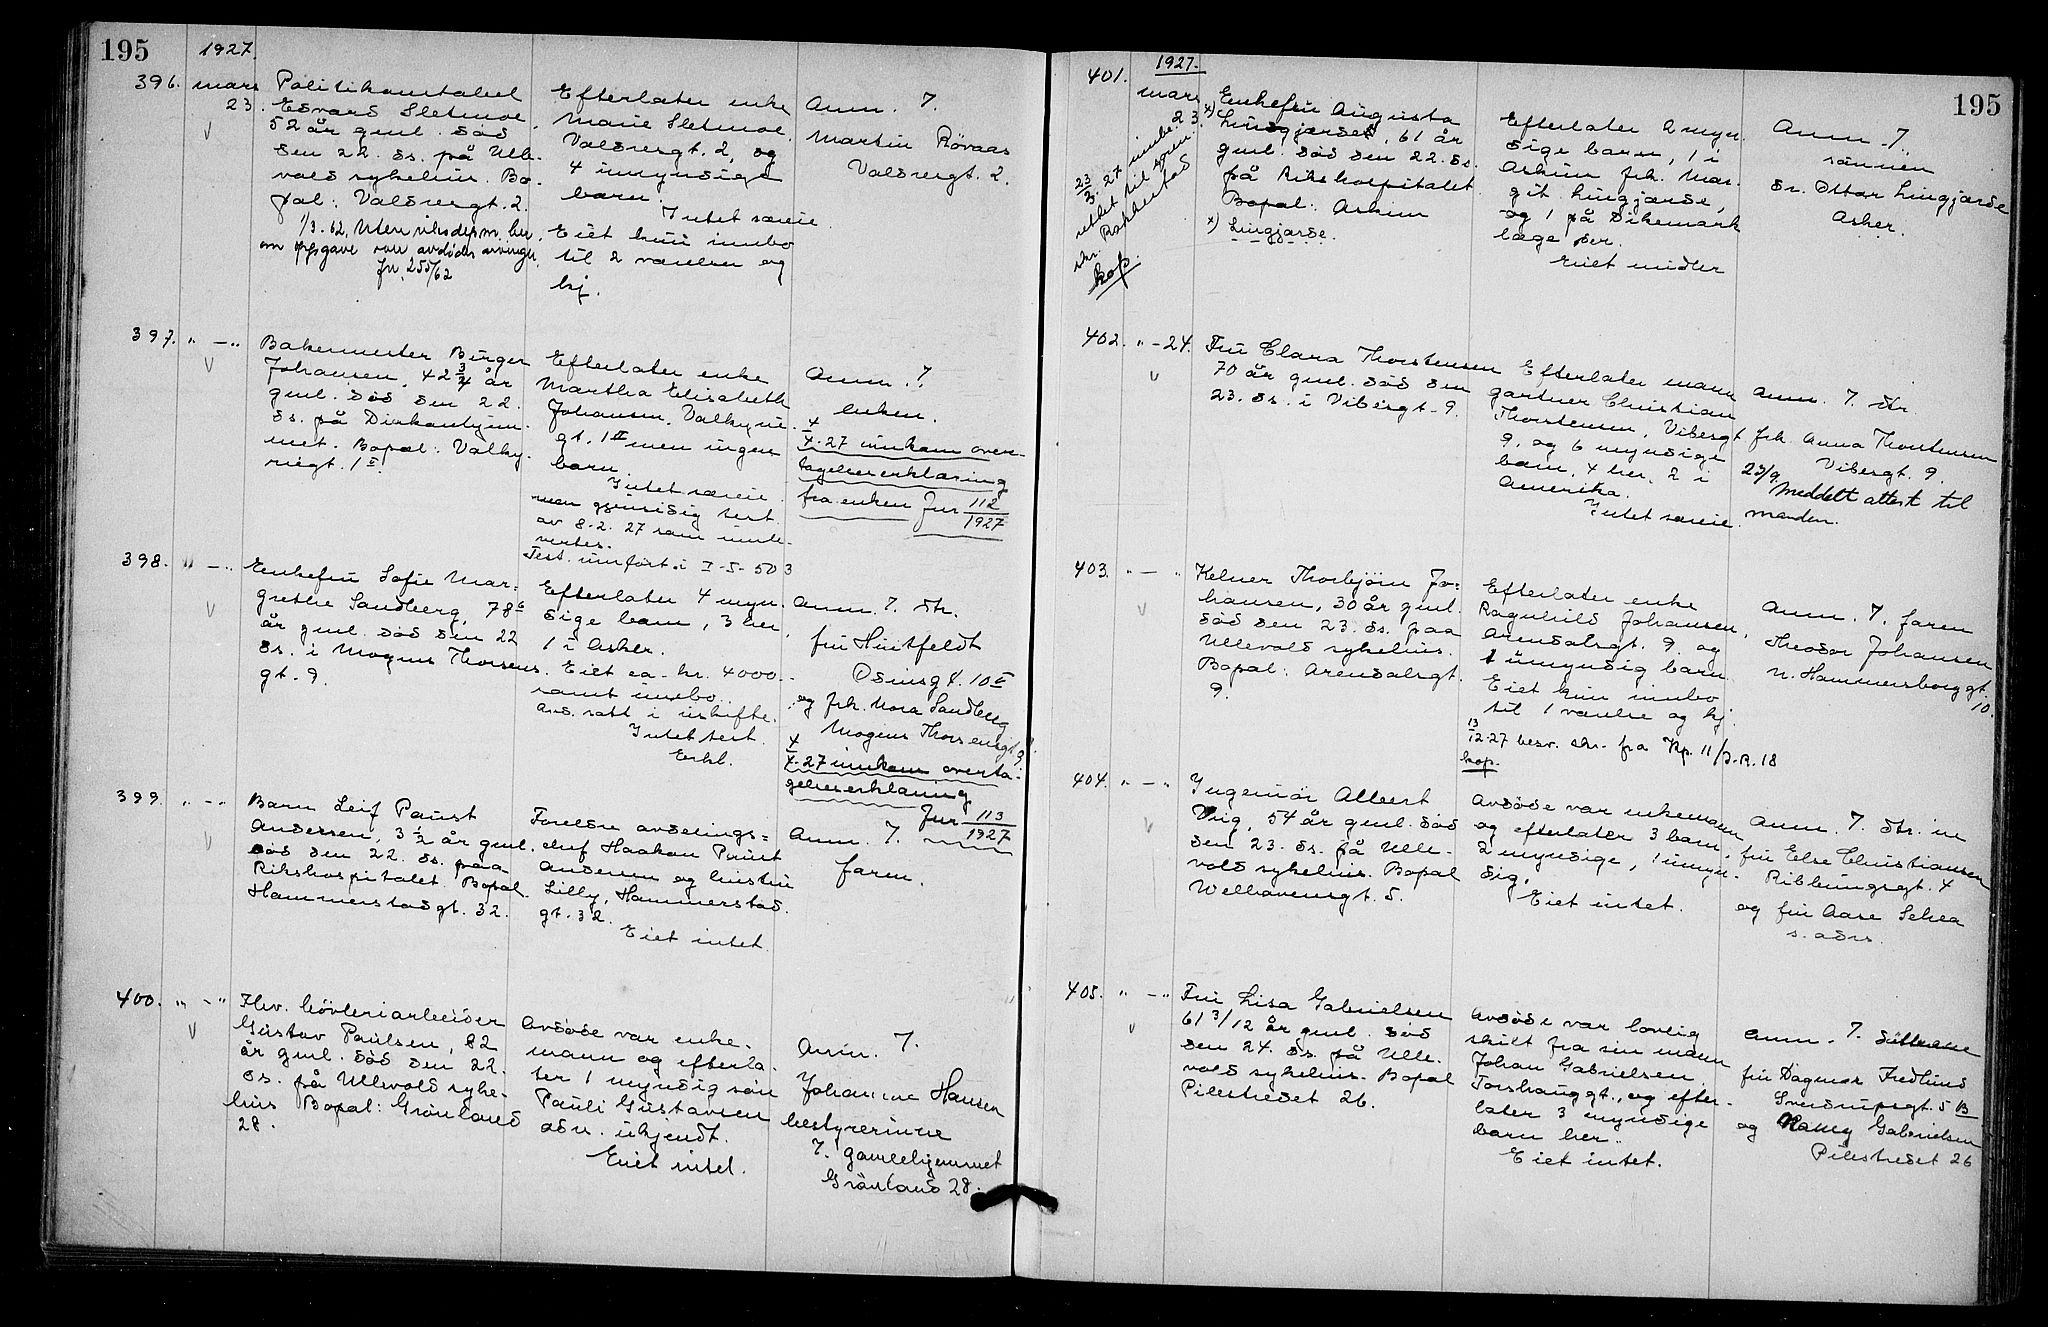 195
1927.
396. mars 23.
Politikonstabel
Edvard Sletmoe,
52 år gml. død
den 22. ds. på Ulle-
vold sykehus. Bo-
pæl: Valdresgt. 2.
1/3.62, Uten
om oppgave over avdødes arvinger.
jnr. 255/62
Efterlater enke
Marie Sletmoe,
Valdresgt. 2, og
4 umyndige
barn.
Intet særeie.
Eiet kun innbo
til 2 værelser og
kj.
Anm. 7.
Martin Røvaas
Valdresgt. 2.
397. " - "
Bakermester Birger
Johansen, 42 3/4 år
gml. død den 22.
ds. på Diakonhjem-
met. Bopæl: Valky-
riegt. 1 I.
Efterlater enke
Martha Elisabeth
Johansen, Valkyrie-
gt. 1 II men ingen
barn.
Intet særeie.
men gjensidig test.
av 8.2.27 som innle-
vertes.
Test. innført i I-5-503
Anm. 7.
enken.
4/4.27 innkom over-
tagelseserklæring
fra enken Jnr 112/1927
398. " - "
Enkefru Sofie Mar-
grethe Sandberg, 78
år gml. død den 22
ds. i Mogens Thorsens
gt. 9.
Efterlater 4 myn-
dige barn, 3 her,
1 i Asker.
Eiet ca. kr. 4000.-
samt innbo.
Avd. satt i uskifte.
Intet test.
Erkl.
Anm. 7. dtr.
fru Huitfeldt
Odinsgt. 10 II
og frk. Nora Sandberg
Mogens Thorsensgt. 9.
4/4.27 innkom overta-
gelseserklæring
Jnr 113/1927
399. " - "
Barn Leif Paust
Andersen, 3 1/2 år gml.
død den 22. ds. paa
Rikshospitalet. Bopæl
Hammerstadgt. 32.
Foreldre avdelings=
chef Haakon Paust
Andersen og hustru
Lilly, Hammerstad-
gt. 32.
Eiet intet.
Anm. 7.
faren.
400. " - "
Fhv. høvleriarbeider
Gustav Paulsen, 82
år gml. død den 22.
ds. på Ullevold syke-
hus Bopæl: Grønland
28.
Avdøde var enke-
mann og efterla-
ter 1 myndig søn
Pauli Gustavsen
adr. ukjendt.
Eiet intet.
Anm. 7.
Johanne Hansen
bestyrerinne
7. gamlehjemmet
Grønland 28.
195
1927.
401. mars 23.
23/3.27 innbe-
rettet til soren-
skr. Rakkestad
kop.
Enkefru Augusta
x) Lundgjærdet, 61 år
gml. død den 22. ds.
på Rikshospitalet
Bopæl: Askim
x) Lingjærde.
Efterlater 2 myn-
dige barn, 1 i
Askim frk. Mar-
git Lingjærde,
og 1 på Dikemark
læge der.
Eiet midler
Anm. 7.
sønnen
dr. Ottar Lingjærde
Asker.
402. " - 24.
Fru Clara Thorstensen
70 år gml. død den
23. ds. i Vibesgt. 9.
Efterlater mann
gartner Christian
Thorstensen, Vibesgt
9. og 6 myndige
barn, 4 her, 2 i
Amerika.
Intet særeie.
Anm. 7. dtr
frk. Anna Thorstensen
Vibesgt. 9.
23/9. Meddelt attest til
manden.
403. " - "
Kelner Thorbjørn Jo-
hansen, 30 år gml.
død den 23. ds. paa
Ullevold sykehus.
Bopæl: Arendalsgt.
9.
Efterlater enke
Ragnhild Johansen,
Arendalsgt. 9. og
1 umyndig barn
Eiet kun innbo
til 1 værelse og kj.
13/12.27 besv. skr. fra Kp. 11/s.R.18
kop.
Anm. 7. faren
Theodor Johansen
n. Hammersborggt.
10.
404. " - "
Ingeniør Albert
Vrig, 54 år gml. død
den 23. ds. på Ulle-
vold sykehus. Bopæl
Welhavensgt. 5.
Avdøde var enkemann
og efterlater 3 barn,
2 myndige, 1 umyn-
dig.
Eiet intet.
Anm. 7. dtr. in
fru Else Christiansen
Ribbungsgt. 4
og fru Aase
s. adrs.
405. " - "
Fru Lisa Gabrielsen
61 3/12 år gml. død
den 24. ds. på Ulle-
vold sykehus. Bopæl
Pilestredet 26.
Avdøde var lovlig
skilt fra sin mann
Johan Gabrielsen
Torshauggt., og efter-
later 3 myndige
barn her.
Eiet intet.
Anm. 7. døttrene
fru Dagmar Fredlund
Sverdrupsgt. 5 B
og Nancy Gabrielsen
Pilestredet 26